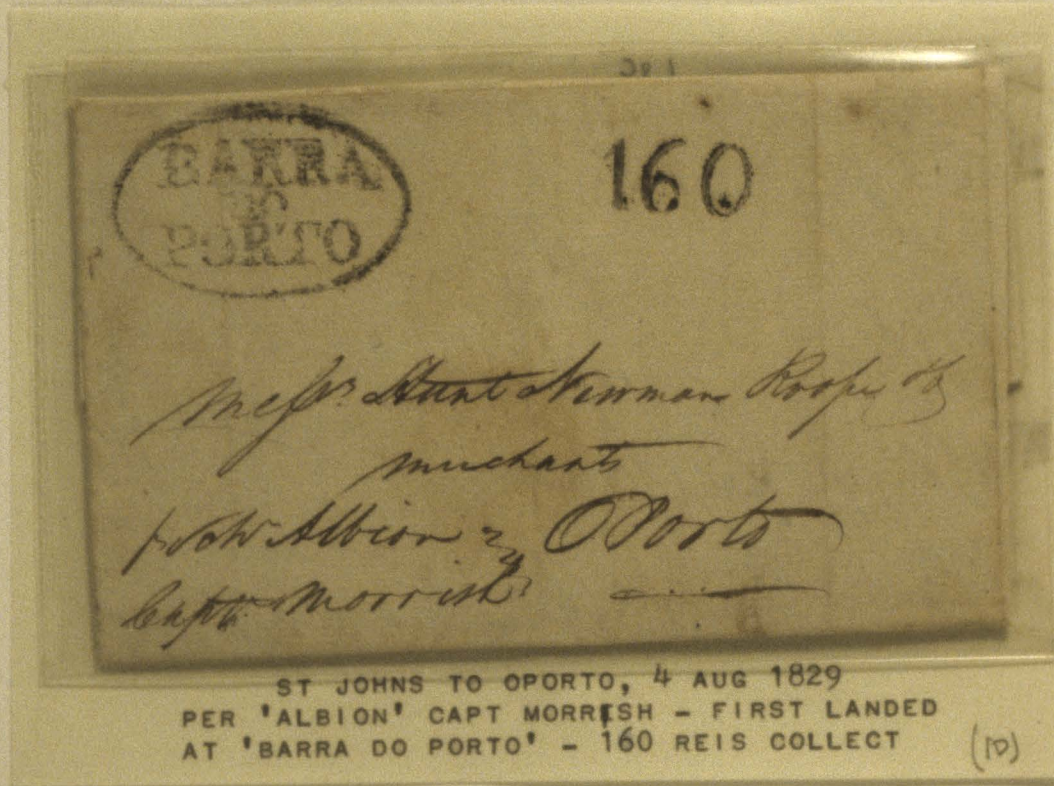 BARRA
DO
PORTO
160
Messrs Hunt Newman Roope & Co
merchants
p Schr Albion OPorto
Captn Morrish
ST JOHNS TO OPORTO, 4 AUG 1829
PER 'ALBION' CAPT MORRISH – FIRST LANDED
AT 'BARRA DO PORTO' – 160 REIS COLLECT
(10)